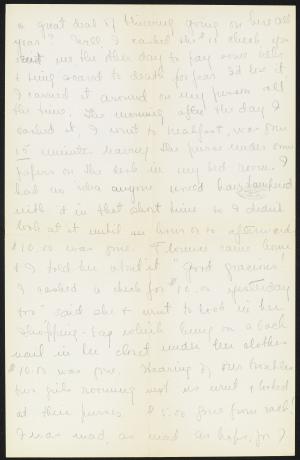 a great deal of thieving going on here all
year? Well I cashed the $15 check you
sent me the other day to pay some bills
& being scared to death for fear I'd lose it
I carried it around on my person all
the time. The morning after the day I
cashed it, I went to breakfast, was gone
15 minutes leaving the purse under some
papers on the desk in my bed room. I
had no idea anyone would have
with it in that short time so I didn't
look at it until an hour or so afterward
$10.00 was gone. Florence came home
& I told her about it "Good gracious!
I cashed a check for $10.00 yesterday
too" said she & went to look in her
shopping-bag which being on a back
nail in her closet under her clothes
$10.00 was gone. Hearing of our troubles
two girls rooming next us went & looked
at their purses. $5.00 gone from each!
I was mad, as mad as hops, for I